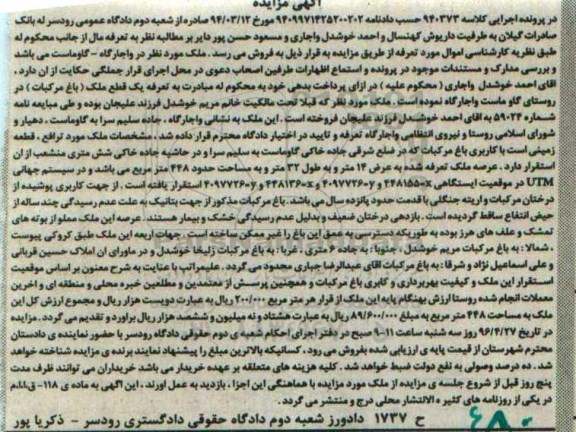 آگهی مزایده
در پرونده اجرایی کلاسه ۹۴۰۳۷۳ حسب دادنامه ۹۴۰۹۹۷۱۴۲۵۲۰۰۲۰۲ مورخ ۹۴/۰۳/۱۲ صادره از شعبه دوم دادگاه عمومی رودسر له بانک
صادرات گیلان به طرفیت داریوش کهنسال و احمد خوشدل واجاری و مسعود حسن پور دایر بر مطالبه نظر به تعرفه مال از جانب محکوم له
طبق نظریه کارشناسی اموال مورد تعرفه از طریق مزایده به قرار ذیل به فروش می رسد. ملک مورد نظر در واجارگاه - گاوماست می باشد
و بررسی مدارک و مستندات موجود در پرونده و استماع اظهارات طرفین اصحاب دعوی در محل اجرای قرار جملگی حکایت از آن دارد.
اقای احمد خوشدل واجاری (محکوم علیه) در ازای پرداخت بدهی خود به محکوم له مبادرت به تعرفه یک قطع ملک (باغ مرکبات) در
روستای گاو ماست واجارگاه نموده است. ملک مورد نظر که قبلا تحت مالکیت خانم مریم خوشدل فرزند علیجان بوده و طی مبایعه نامه
شماره ۵۹۰۲۴ به اقای احمد خوشدل فرزند علیجان فروخته است. این ملک به نشانی واجارگاه، جاده سلیم سرا به گاوماست، دهیار و
شورای اسلامی روستا و نیروی انتظامی واجارگاه تعرفه و تایید در اختیار دادگاه محترم قرار داده شد. مشخصات ملک مورد ترافع، قطعه
زمینی است با کاربری باغ مرکبات که در ضلع شرقی جاده خاکی گاوماست به سلیم سرا و در حاشیه جاده خاکی شش متری منشعب از ان
استقرار دارد. عرصه ملک تعرفه شده به عرض ۱۴ متر و به طول ۳۲ متر و به مساحت حدود ۴۴۸ متر مربع می باشد و در سیستم جهانی
UTM در موقعیت ایستگاهی ۴۴۸۱۵۵۰=x ۴۰۹۷۷۲۶۰=y و ۴۴۸۱۳۶۰=x ۴۰۹۷۷۲۶۰=y استقرار یافته است. از جهت کاربری پوشیده از
درختان مرکبات و اریته جنگلی با قدمت حدود پانزده سال می باشد. باغ مرکبات مذکور از جهت بتانیک به علت عدم رسیدگی چند ساله از
حیض انتفاع ساقط گردیده است. بازدهی درختان ضعیف و بدلیل عدم رسیدگی خشک و بیمار هستند. عرصه این ملک مملو از بوته های
تمشک و علف های هرز بوده به طوریکه دسترسی به عمق این باغ را غیر ممکن ساخته است. جهات اربعه این ملک طبق کروکی پیوست
، شمالا: به باغ مرکبات مریم خوشدل، جنوبا: به جاده ۶ متری، غربا: به باغ مرکبات زلیخا خوشدل و در ماورای ان املاک حسین قربانی
و علی اسماعیل نژاد و شرقا: به باغ مرکبات اقای عبدالرضا جباری محدود می گردد. علیمراتب با عنایت به شرح معنون بر اساس موقعیت
استقرار این ملک و کیفیت بهره برداری و کابری باغ مرکبات و همچنین پرسش از معتمدین و مطلعین خبره محلی و منطقه ای و اخرین
معاملات انجام شده روستا ارزش بهنگام پایه این ملک از قرار هر متر مربع ۲۰۰/۰۰۰ ریال به عبارت دویست هزار ریال و مجموع ارزش کل این
ملک به مساحت ۴۴۸ متر مربع به مبلغ ۸۹/۶۰۰/۰۰۰ ریال به عبارت هشتاد و نه میلیون و ششصد هزار ریال براورد و تقدیم می گردد. مزایده
در تاریخ ۹۶/۴/۲۷ روز سه شنبه ساعت ۱۱-۹ صبح در دفتر اجرای احکام شعبه ی دوم حقوقی دادگاه رودسر با حضور نماینده ی دادستان
محترم شهرستان از قیمت پایه ی ارزیابی شده بفروش می رود. کسانیکه بالاترین مبلغ را پیشنهاد نمایند برنده ی مزایده شناخته خواهد
شد. ده درصد وصولی به نفع دولت ضبط خواهد شد. کلیه هزینه های متعلقه بر عهده خریدار می باشد خریداران می توانند ظرف مدت
پنج روز قبل از شروع جلسه ی مزایده از ملک مورد مزایده با هماهنگی این اجرا، بازدید به عمل اورند. این آگهی به ماده ی ۱۱۸-ق.ا.ا.م
در یکی از روزنامه های کثیر الانتشار محلی درج و منتشر می گردد.
ح ۱۷۳۷ دادورز شعبه دوم دادگاه حقوقی دادگستری رودسر - ذکریا پور